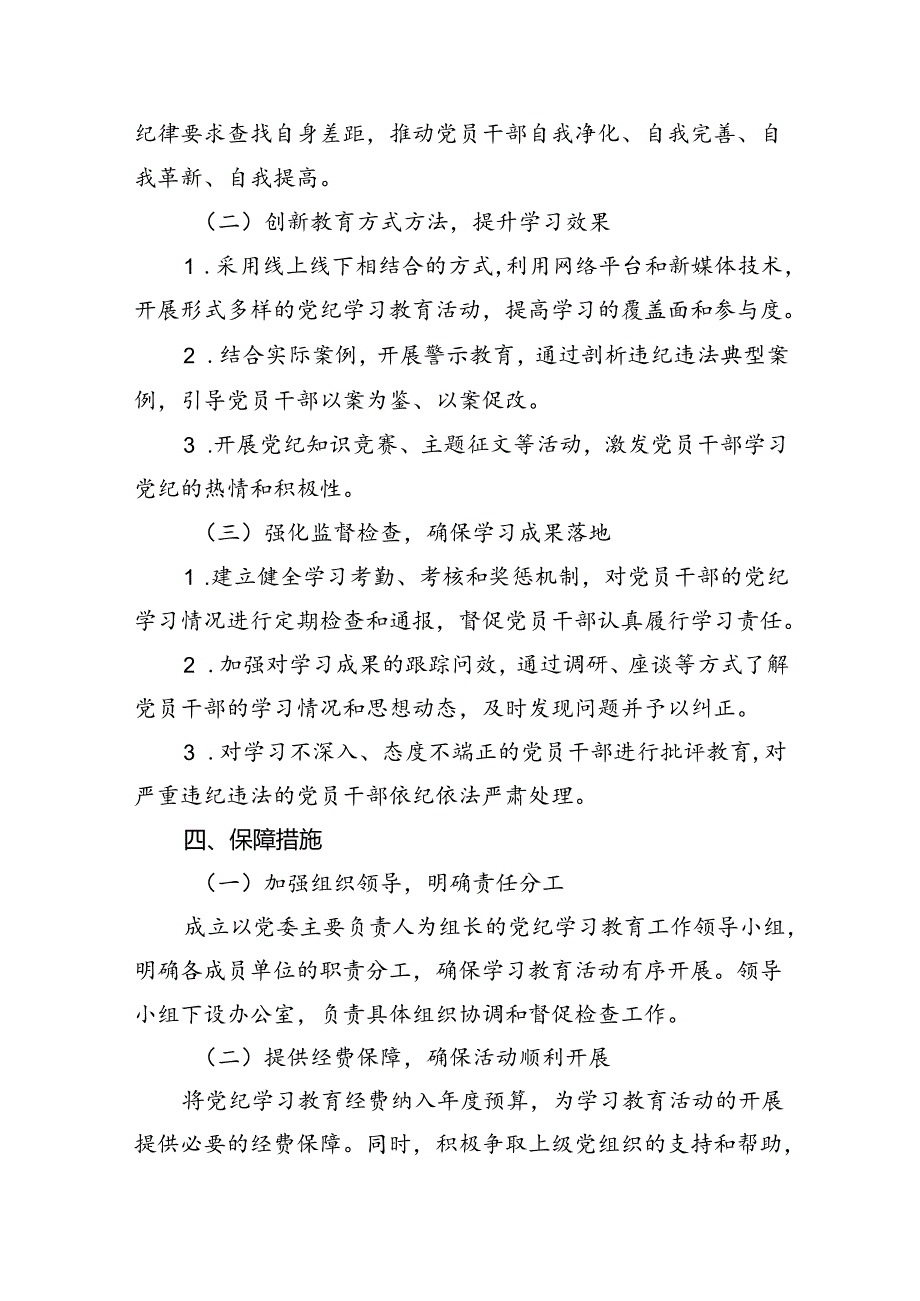 纪律要求查找自身差距，推动党员干部自我净化、自我完善、自
我革新、自我提高。
（二）创新教育方式方法，提升学习效果
1.采用线上线下相结合的方式，利用网络平台和新媒体技术，
开展形式多样的党纪学习教育活动，提高学习的覆盖面和参与度。
2.结合实际案例，开展警示教育，通过剖析违纪违法典型案
例，引导党员干部以案为鉴、以案促改。
3.开展党纪知识竞赛、主题征文等活动，激发党员干部学习
党纪的热情和积极性。
（三）强化监督检查，确保学习成果落地
1.建立健全学习考勤、考核和奖惩机制，对党员干部的党纪
学习情况进行定期检查和通报，督促党员干部认真履行学习责任。
2.加强对学习成果的跟踪问效，通过调研、座谈等方式了解
党员干部的学习情况和思想动态，及时发现问题并予以纠正。
3.对学习不深入、态度不端正的党员干部进行批评教育，对
严重违纪违法的党员干部依纪依法严肃处理。
四、保障措施
（一）加强组织领导，明确责任分工
成立以党委主要负责人为组长的党纪学习教育工作领导小组，
明确各成员单位的职责分工，确保学习教育活动有序开展。领导
小组下设办公室，负责具体组织协调和督促检查工作。
（二）提供经费保障，确保活动顺利开展
将党纪学习教育经费纳入年度预算，为学习教育活动的开展
提供必要的经费保障。同时，积极争取上级党组织的支持和帮助，